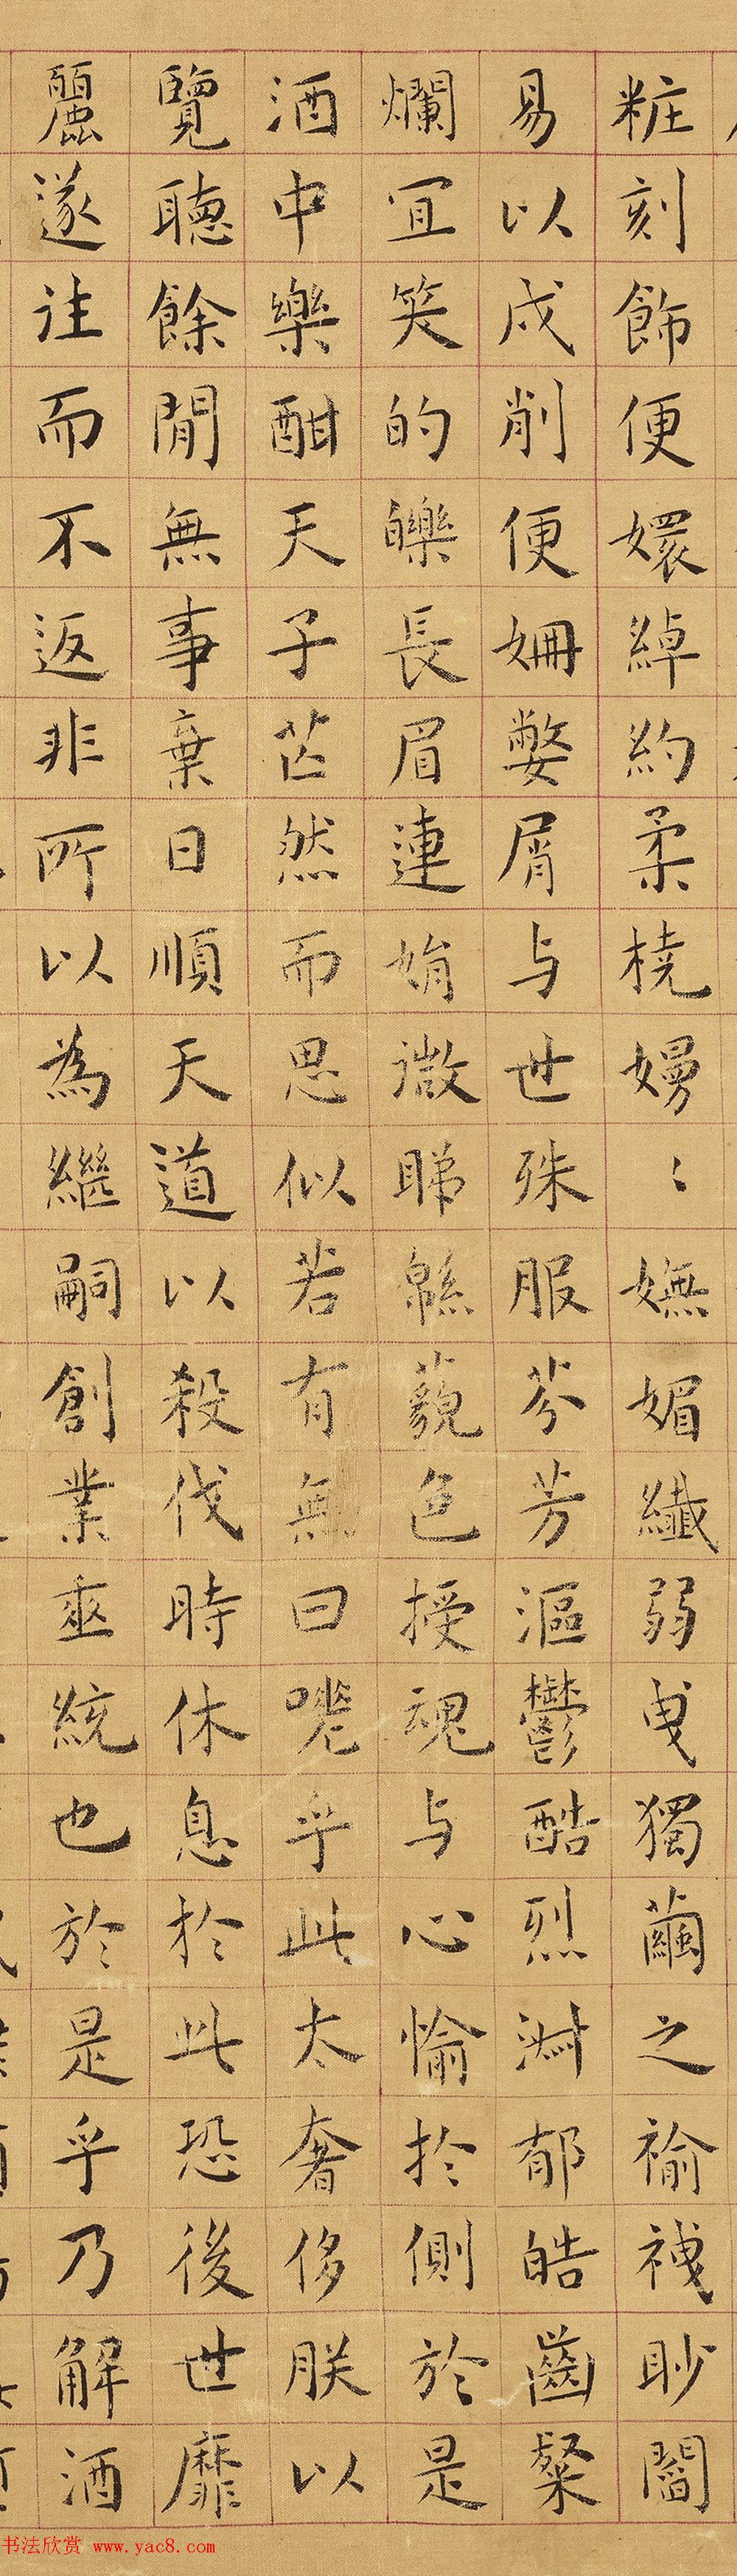 粧刻飾便嬛綽約柔橈嫚〻嫵媚纖弱曵獨繭之褕袣眇閻
易以戍削便姍嫳屑与世殊服芬芳漚鬱酷烈淑郁皓齒粲
爛宜笑的皪長眉連娟微睇緜藐色授魂与心愉於側於是
酒中樂酣天子芒然而思似若有無曰嗟乎此太奢侈朕以
覽聽餘閒無事棄日順天道以殺伐時休息於此恐後世靡
麗遂往而不返非所以為繼嗣創業垂統也於是乎乃解酒
书法欣赏 www.yac8.com